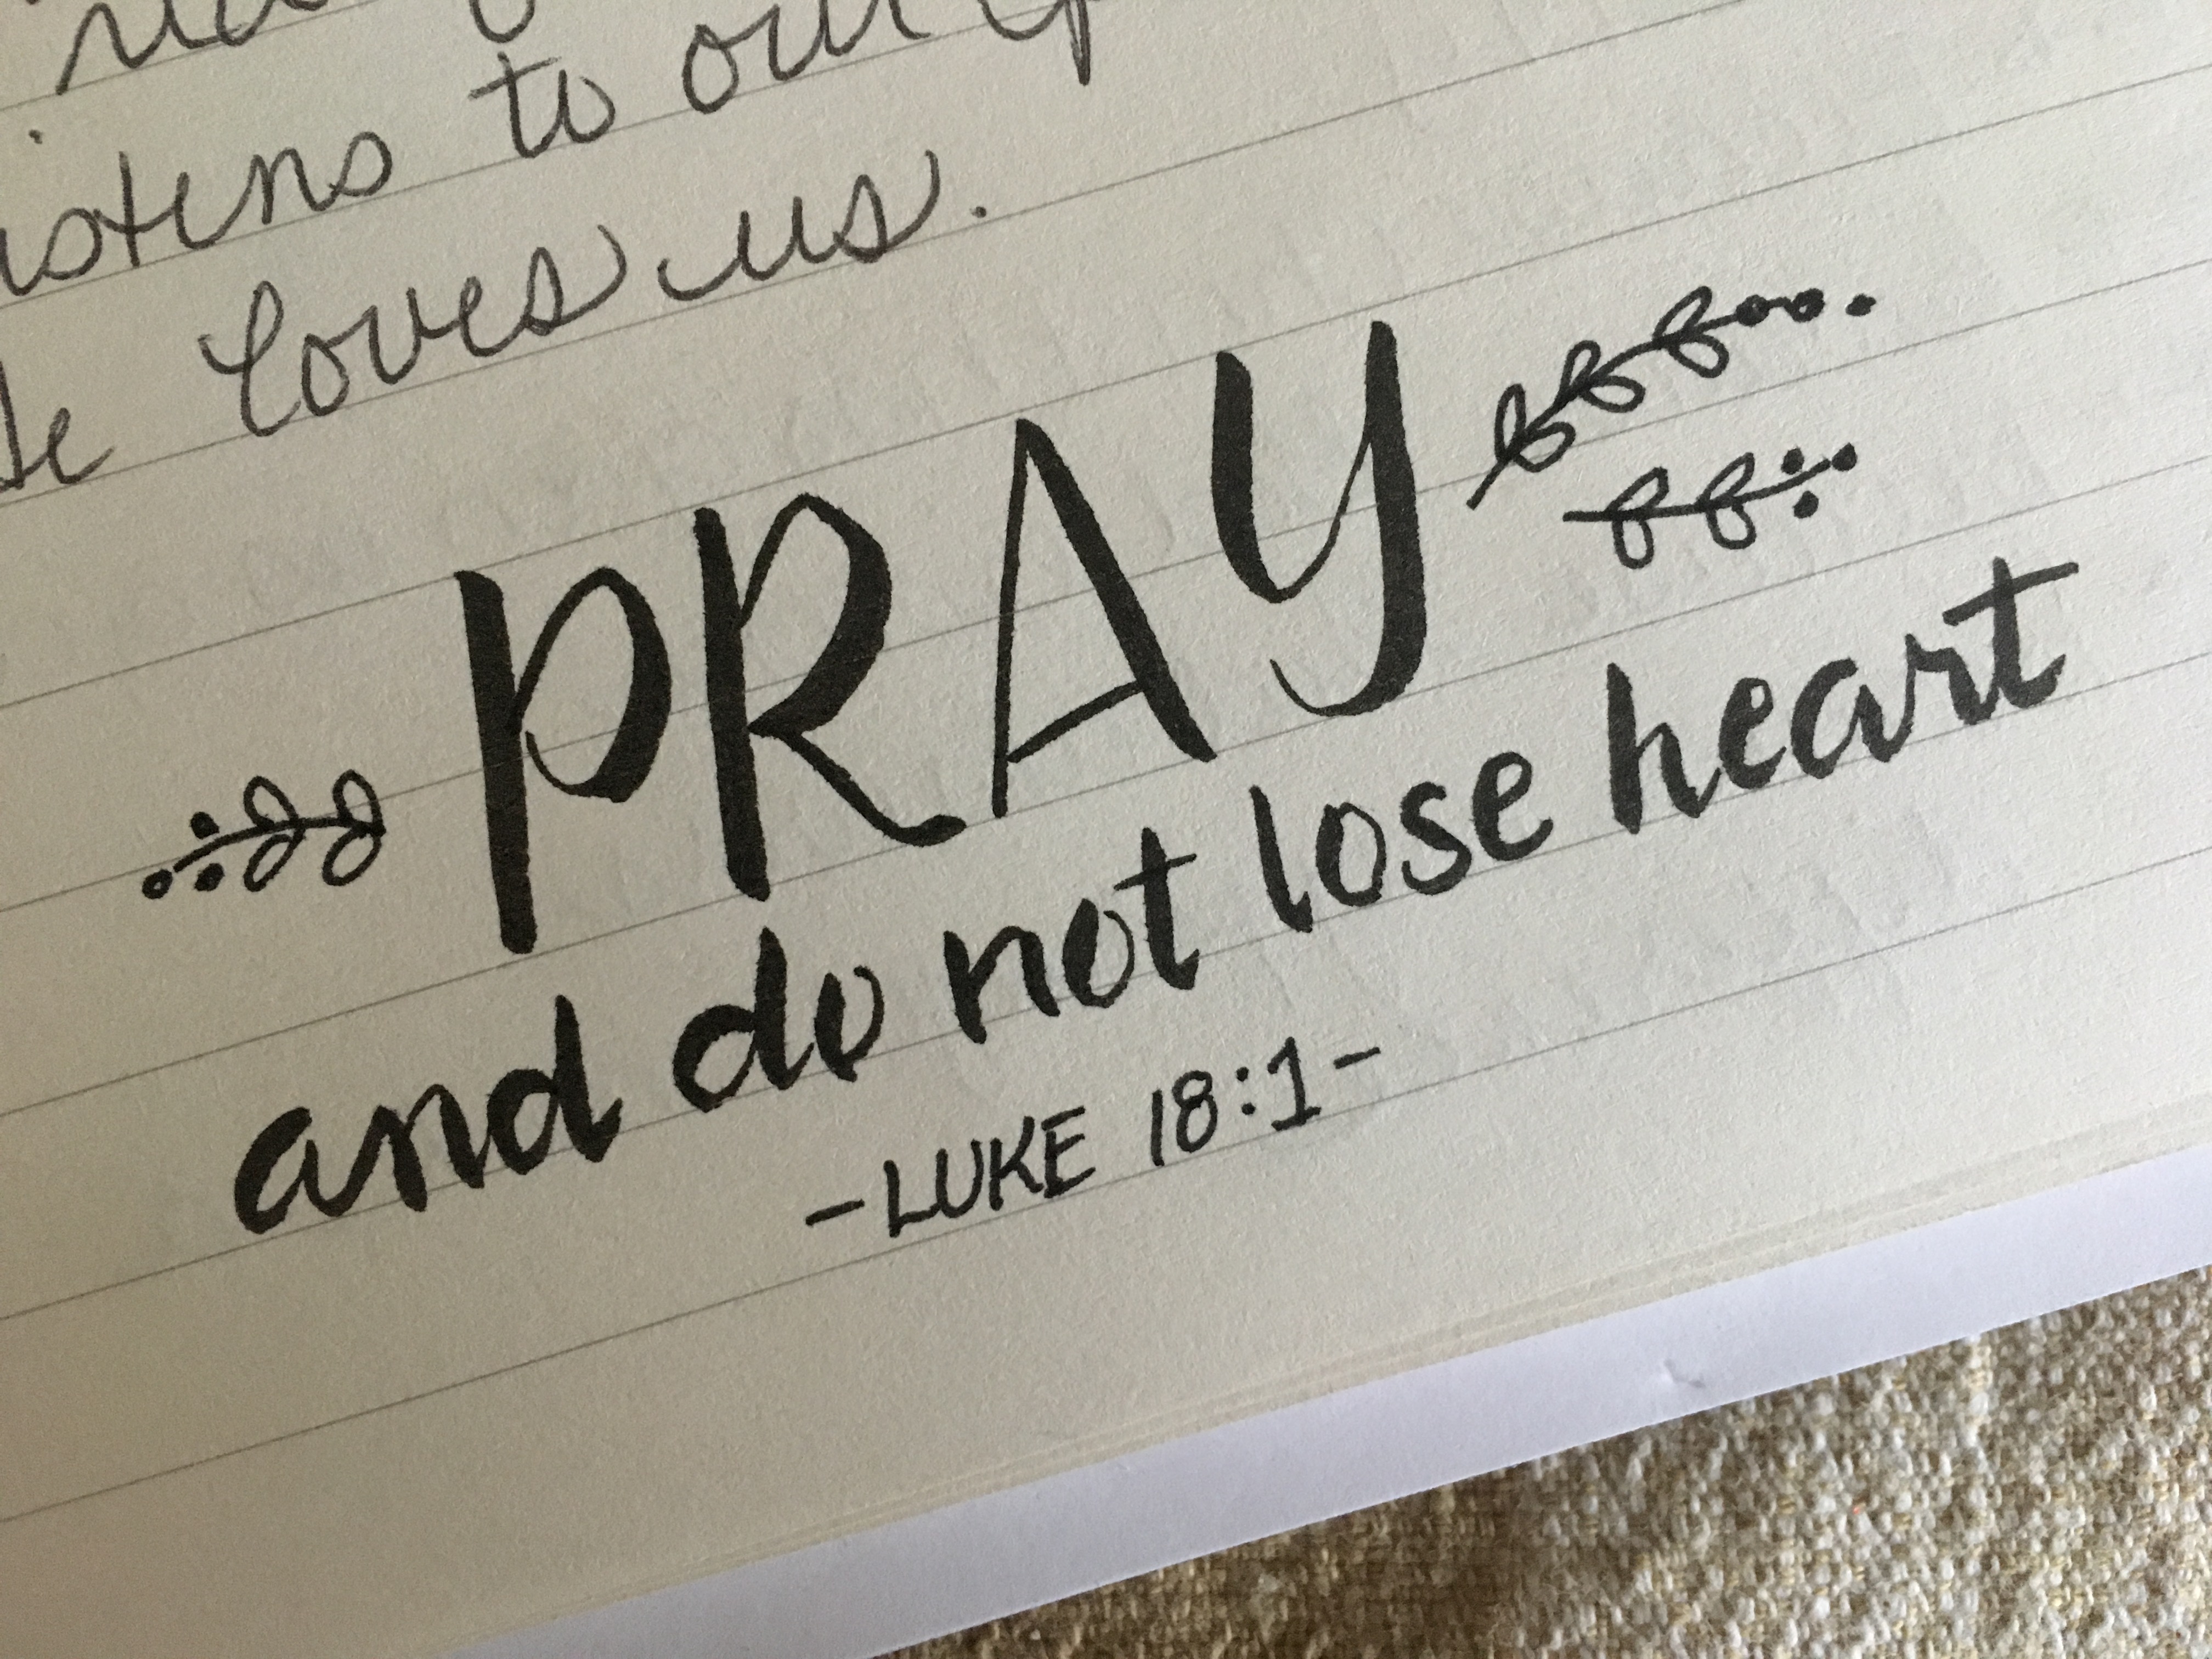 to our
loves us.
PRAY
and do not lose heart
-LUKE 18:1-